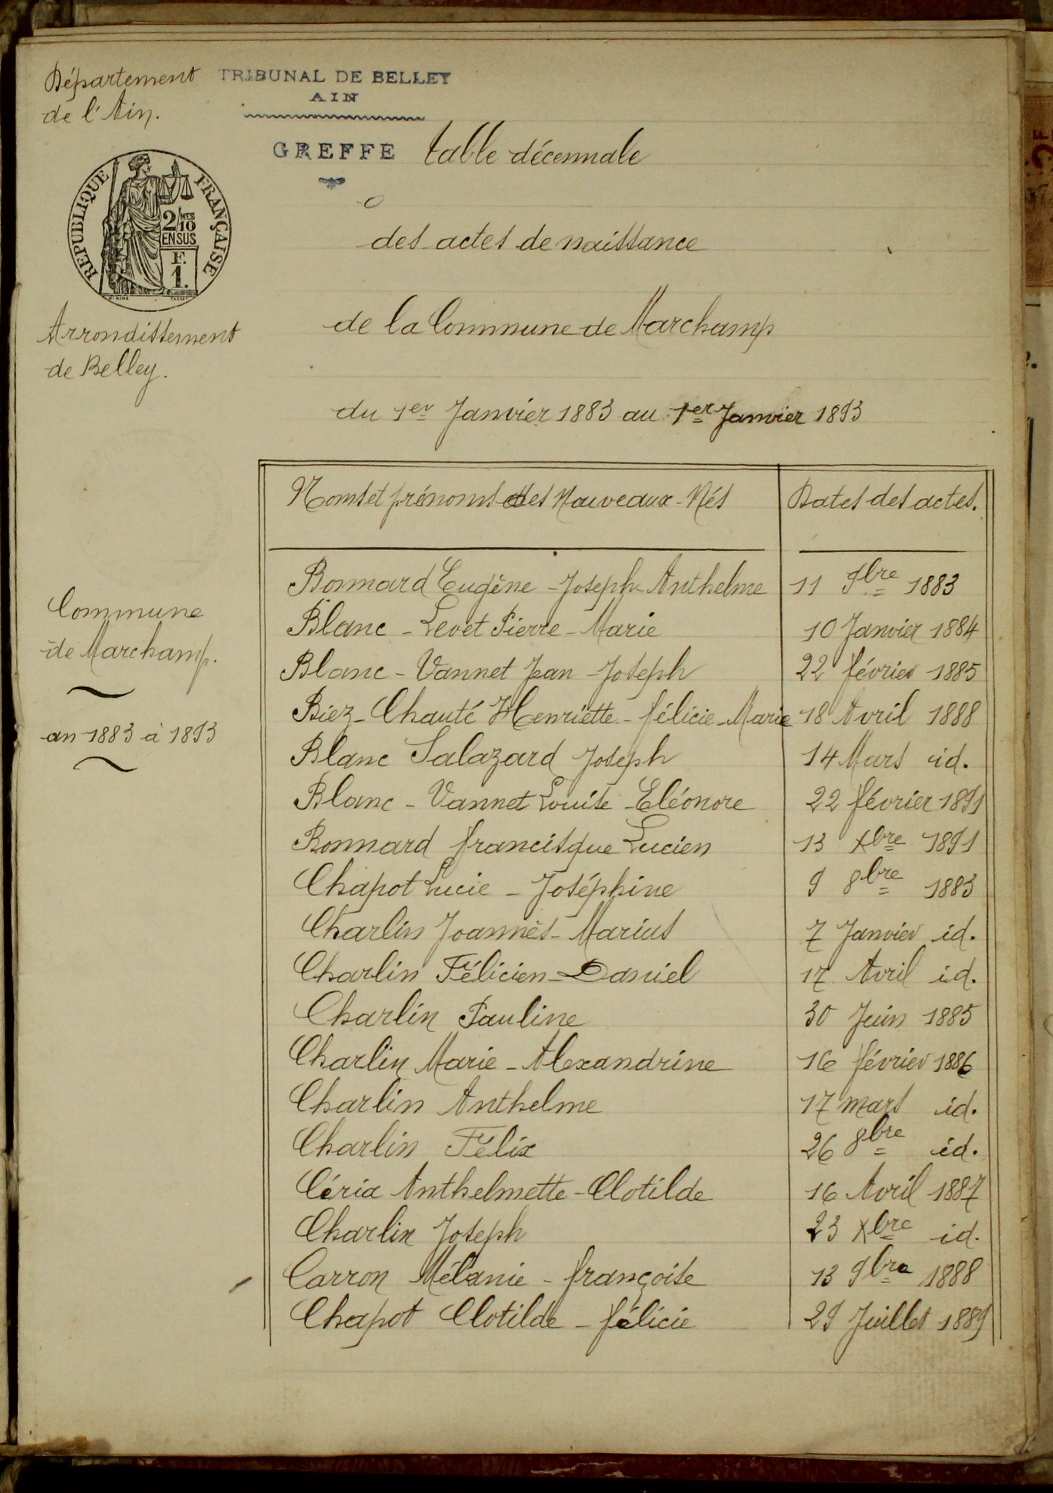 Département
de l'Ain.
TRIBUNAL DE BELLEY
AIN
GREFFE
REPUBLIQUE FRANÇAISE
2/10
EN SUS
F.
1.
Arrondissement
de Belley.
table décennale
des actes de naissance
de la Commune de Marchamp
du 1er Janvier 1883 au 1er Janvier 1893
Commune
de Marchamp.
an 1883 à 1893
Noms et prénoms des Nouveaux-Nés Dates des actes.
Bonnard Eugène-Joseph-Anthelme 11 9bre 1883
Blanc-Levet Pierre-Marie 10 Janvier 1884
Blanc-Vannet Jean-Joseph 22 février 1885
Biez-Chauté Henriette-félicie-Marie 18 Avril 1888
Blanc Salazard Joseph 14 Mars id.
Blanc-Vannet Louise-Eléonore 22 février 1891
Bonnard francisque Lucien 13 Xbre 1891
Chapot Lucie-Joséphine 9 8bre 1883
Charlin Joannès-Marius 7 Janvier id.
Charlin Félicien-Daniel 17 Avril id.
Charlin Pauline 30 Juin 1885
Charlin Marie-Alexandrine 16 février 1886
Charlin Anthelme 17 mars id.
Charlin Félix 26 8bre id.
Céria Anthelmette-Clotilde 16 Avril 1887
Charlin Joseph 23 Xbre id.
Carron Mélanie-françoise 13 9bre 1888
Chapot Clotilde-félicie 29 Juillet 1889